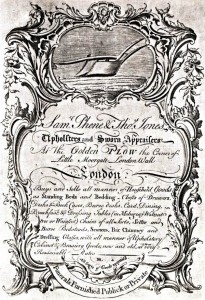 Sam: Phene & Tho: Jones,
Upholsters and Sworn Appraisers
At the Golden PLOW the Corner of
Little Moorgate, London Wall
London:
Buys and Sells all manner of Houshold Goods
as Standing Beds and Bedding, Chests of Drawers,
Desks & Book Cases, Buroy desks, Card, Dining,
Breakfast & Dressing Tables (in Mahogony Walnutt-
Chairs of all Sorts, Settee and
Down Bedsteads, Sconces, Pier Chimney and
Dressing Glasses, with all manner of Upholstery
Cabinet & Brasiery Goods, new and old, at very
Reasonable Rates
Furnished Publick or Private